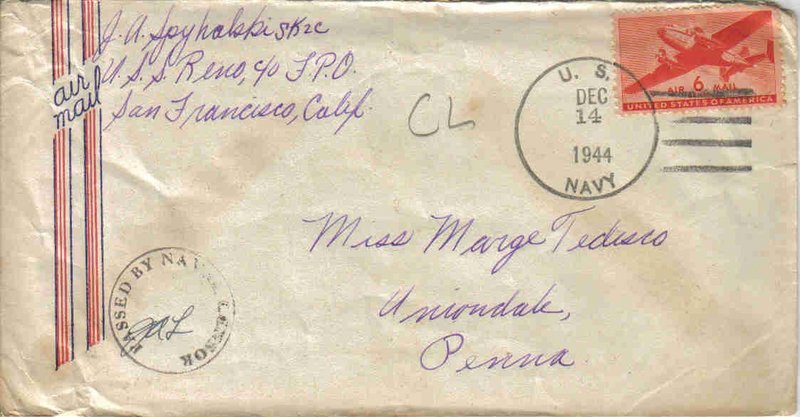 J. A. Spyhalski SK2C
U.S.S. Reno, c/o F.P.O.
San Francisco, Calif.
air
mail
CL
U. S.
DEC
14
1944
NAVY
6
AIR MAIL
UNITED STATES OF AMERICA
Miss Marge Tedesco
Uniondale,
Penna.
PASSED BY NAVAL CENSOR